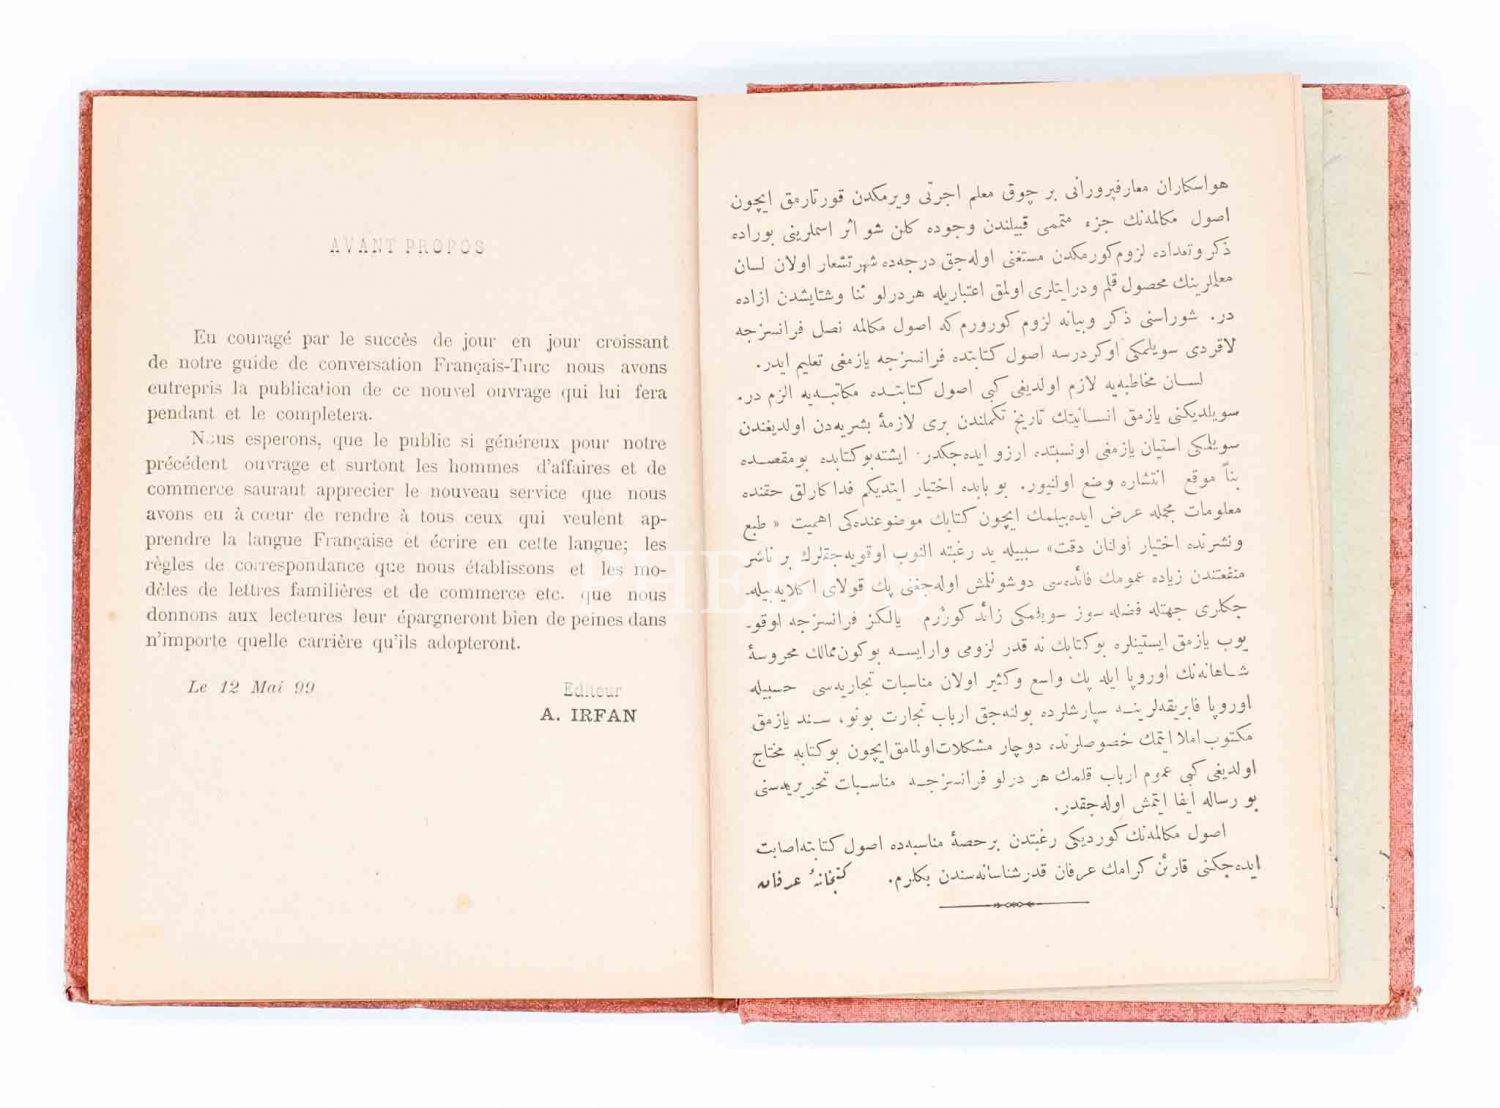 AVANT PROPOS
Eu couragé par le succès de jour en jour croissant
de notre guide de conversation Français-Turc nous avons
eutrepris la publication de ce nouvel ouvrage qui lui fera
pendant et le completera.
Nous esperons, que le public si généreux pour notre
précédent ouvrage et surtont les hommes d'affaires et de
commerce sauraut apprecier le nouveau service que nous
avons eu à cœur de rendre à tous ceux qui veulent ap-
prendre la langue Française et écrire en cette langue; les
règles de correspondance que nous établissons et les mo-
dèles de lettres familières et de commerce etc. que nous
donnons aux lecteures leur épargneront bien de peines dans
n'importe quelle carrière qu'ils adopteront.
Le 12 Mai 99
Editeur
A. IRFAN
هواسکاران معارفپرورانی بر چوق معلم اجرتی ویرمکدن قورتارمق ایچون
اصول مکالمه‌نك جزء متممی قبیلندن وجوده کلن شو اثر اسملرینی بوراده
ذکر و تعداده لزوم کورمکدن مستغنی اوله‌جق درجه‌ده شهرتشعار اولان لسان
معلملرینك محصول قلم ودرایتلری اولمق اعتباریله هردرلو ثنا وشتایشدن ازاده
در. شوراسنی ذکر وبیانه لزوم کورورم که اصول مکالمه نصل فرانسزجه
لاقردی سویلمکی اوکردرسه اصول کتابتده فرانسزجه یازمغی تعلیم ایدر.
لسان مخاطبه‌یه لازم اولدیغی کبی اصول کتابتده مکاتبه‌یه الزم در.
سویلدیکنی یازمق انسانیتك تاریخ تکملندن بری لازمهٔ بشریه‌دن اولدیغندن
سویلمکی استیان یازمغی اونسبتده ارزو ایده‌جکدر. ایشته‌بوکتابده بومقصده
بناً موقع انتشاره وضع اولنیور. بو بابده اختیار ایتدیکم فداکارلق حقنده
معلومات مجمله عرض ایده‌بیلمك ایچون کتابك موضوعنده‌کی اهمیت « طبع
ونشرنده اختیار اولنان دقت» سببیله ید رغبته النوب اوقویه‌جقلرك بر ناشر
منفعتندن زیاده عمومك فائده‌سی دوشونلمش اوله‌جغنی پك قولای اکلایه‌بیله‌
جکلری جهتله فضله سوز سویلمکی زائد کورزم یالکز فرانسزجه اوقو-
یوب یازمق ایستینلره بوکتابك نه قدر لزومی وارایسه بوکون ممالك محروسهٔ
شاهانه‌نك اوروپا ایله پك واسع وکثیر اولان مناسبات تجاریه‌سی حسبیله
اوروپا فابریقه‌لرینه سپارشلرده بولنه‌جق ارباب تجارت بونو، سند یازمق
مکتوب املا ایتمك خصوصلرنده دوچار مشکلات اولمامق ایچون بوکتابه محتاج
اولدیغی کبی عموم ارباب قلمك هر درلو فرانسزجه مناسبات تحریریه‌سنی
بو رساله ایفا ایتمش اوله‌جقدر.
اصول مکالمه‌نك کوردیکی رغبتدن برحصهٔ مناسبه‌ده اصول کتابته‌اصابت
ایده‌جکنی قارئن کرامك عرفان قدرشناسانه‌سندن بکلرم. کتبخانهٔ عرفان
PHEBUS